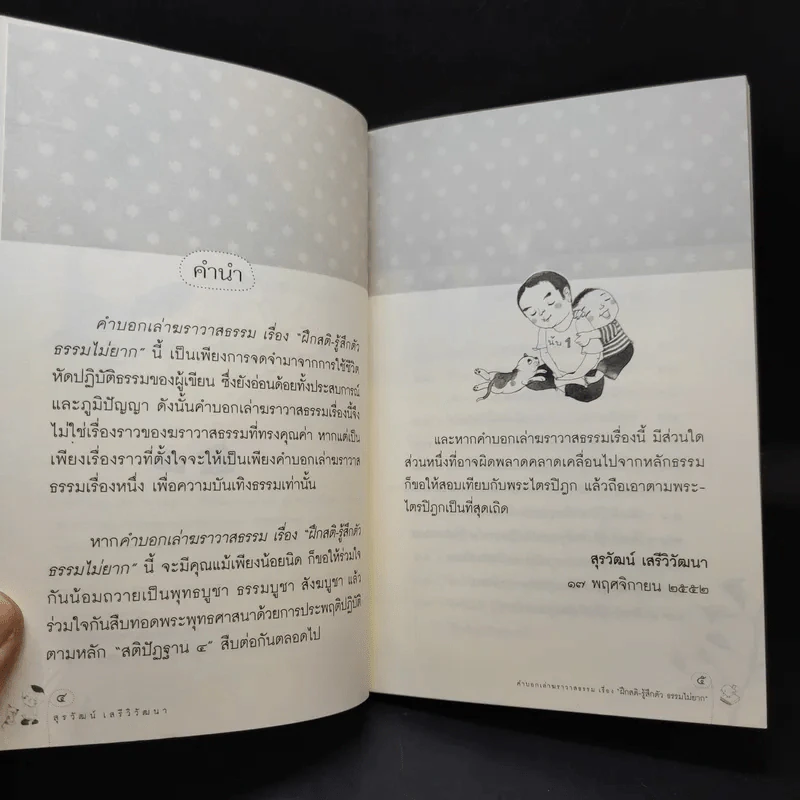 คำนำ
คำบอกเล่าฆราวาสธรรม เรื่อง “ฝึกสติ-รู้สึกตัว
ธรรมไม่ยาก” นี้ เป็นเพียงการจดจำมาจากการใช้ชีวิต
หัดปฏิบัติธรรมของผู้เขียน ซึ่งยังอ่อนด้อยทั้งประสบการณ์
และภูมิปัญญา ดังนั้นคำบอกเล่าฆราวาสธรรมเรื่องนี้จึง
ไม่ใช่เรื่องราวของฆราวาสธรรมที่ทรงคุณค่า หากแต่เป็น
เพียงเรื่องราวที่ตั้งใจจะให้เป็นเพียงคำบอกเล่าฆราวาส
ธรรมเรื่องหนึ่ง เพื่อความบันเทิงธรรมเท่านั้น
หากคำบอกเล่าฆราวาสธรรม เรื่อง “ฝึกสติ-รู้สึกตัว
ธรรมไม่ยาก” นี้ จะมีคุณแม้เพียงน้อยนิด ก็ขอให้ร่วมใจ
กันน้อมถวายเป็นพุทธบูชา ธรรมบูชา สังฆบูชา แล้ว
ร่วมใจกันสืบทอดพระพุทธศาสนาด้วยการประพฤติปฏิบัติ
ตามหลัก “สติปัฏฐาน ๔” สืบต่อกันตลอดไป
๔
สุรวัฒน์ เสรีวิวัฒนา
นับ 1
และหากคำบอกเล่าฆราวาสธรรมเรื่องนี้ มีส่วนใด
ส่วนหนึ่งที่อาจผิดพลาดคลาดเคลื่อนไปจากหลักธรรม
ก็ขอให้สอบเทียบกับพระไตรปิฎก แล้วถือเอาตามพระ-
ไตรปิฎกเป็นที่สุดเถิด
สุรวัฒน์ เสรีวิวัฒนา
๑๗ พฤศจิกายน ๒๕๕๒
๕
คำบอกเล่าฆราวาสธรรม เรื่อง “ฝึกสติ-รู้สึกตัว ธรรมไม่ยาก”